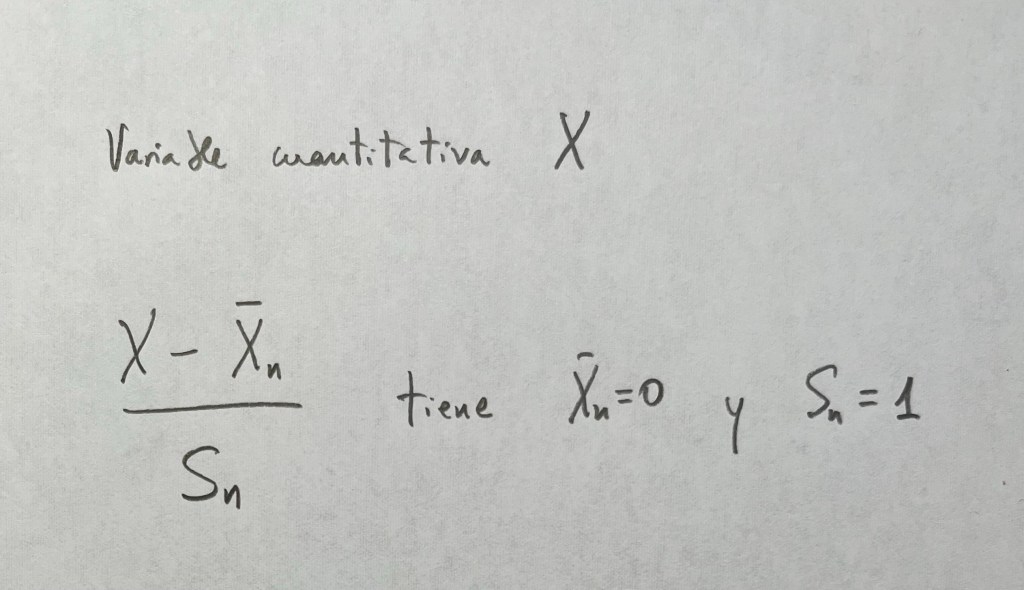 Variable cuantitativa X
X - X̄ₙ
Sₙ tiene X̄ₙ=0 y Sₙ=1